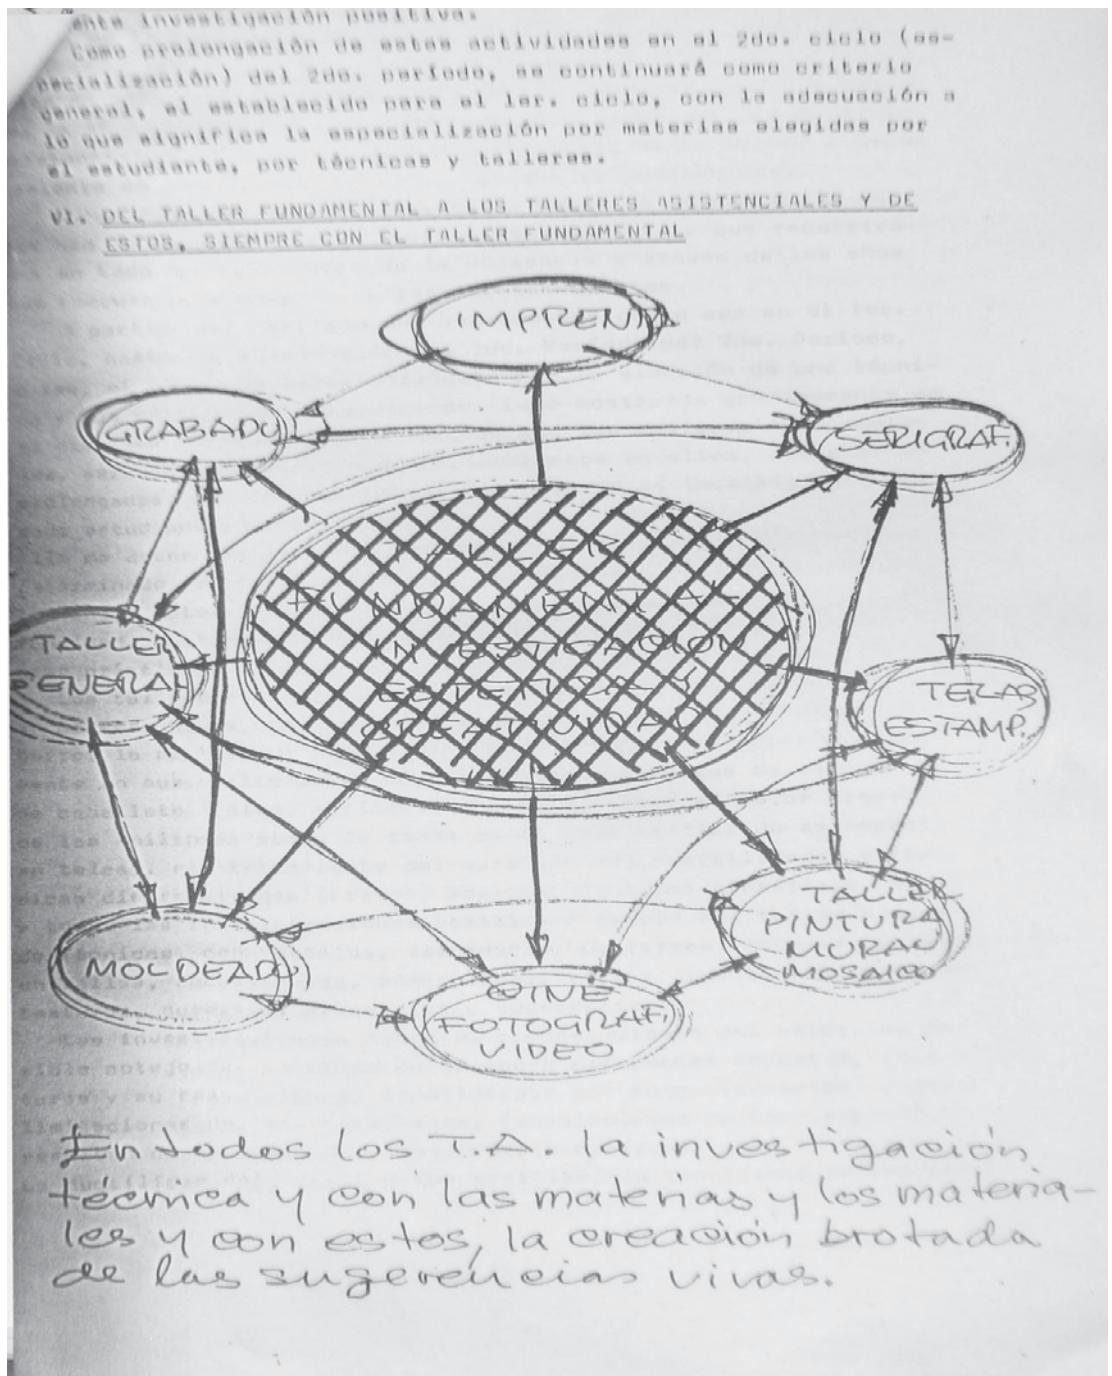 ente investigación positiva.
Como prolongación de estas actividades en el 2do. ciclo (es-
pecialización) del 2do. período, se continuará como criterio
general, el establecido para el 1er. ciclo, con la adecuación a
lo que significa la especialización por materias elegidas por
el estudiante, por técnicas y talleres.
VI. DEL TALLER FUNDAMENTAL A LOS TALLERES ASISTENCIALES Y DE
ESTOS, SIEMPRE CON EL TALLER FUNDAMENTAL
IMPRENTA
GRABADO
SERIGRAF.
TALLER
FUNDAMENTAL
INVESTIGACION
Y
CREATIVIDAD
TALLER
GENERAL
TELAS
ESTAMP.
MOLDEADO
CINE
FOTOGRAF.
VIDEO
TALLER
PINTURA
MURAL
MOSAICO
En todos los T.A. la investigación
técnica y con las materias y los materia-
les y con estos, la creación brotada
de las sugerencias vivas.